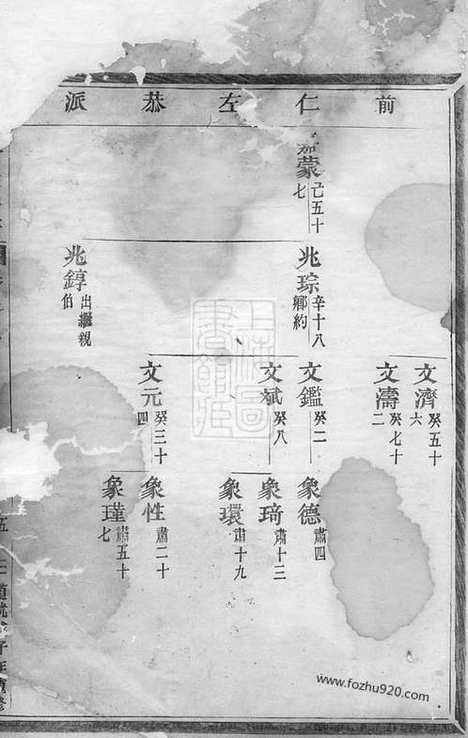 前仁左恭派
蒙 己五十七
兆琮 辛十八 鄉約
兆錞 出繼親伯
文濟 癸五十六
文濤 癸七十二
文鑑 癸二
文斌 癸八
文元 癸三十四
象德 肅四
象琦 肅十三
象環 肅十九
象性 肅二十
象瑾 肅五十七
五
子年重修
上海圖書館藏
www.fozhu920.com